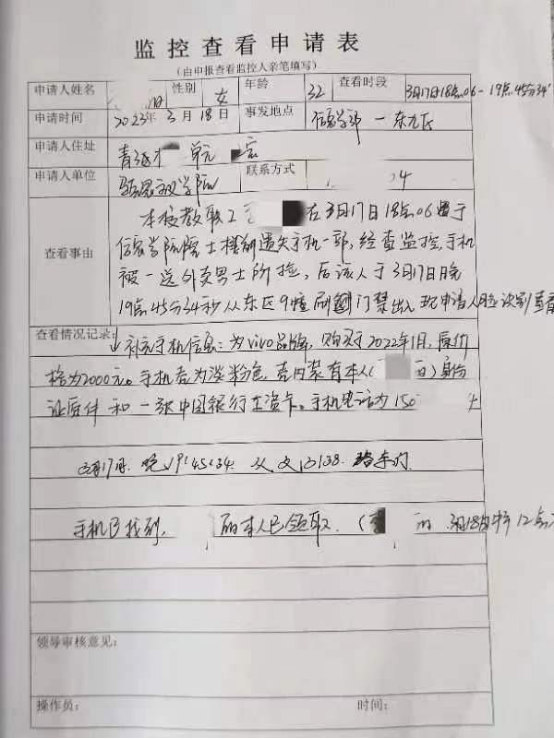 监控查看申请表
(由申报查看监控人亲笔填写)
申请人姓名 性别 女 年龄 32 查看时段 3月17日18点06-19点45分34
申请时间 2023年3月18日 事发地点 信息学部-东九区
申请人住址 单元
申请人单位 学院 联系方式 4
查看事由 本校教职工 在3月17日18点06遗于
信息学院博士楼前遗失手机一部,经查监控,手机
被一送外卖男士所捡,后该人于3月17日晚
19点45分34秒从东区9幢刷 门禁出入 现申请人脸识别查看
查看情况记录: 补充手机信息:为vivo品牌,购买于2022年1月,原价
格为2000元。手机壳为浅粉色,壳内装有本人( )身份
证原件和一张中国银行工资卡。手机电话为150
3月17日 晚19:45:34 从 东门
手机已找到, 丽本人已领取. ( 3月18日 12点
领导审核意见:
操作员: 时间: